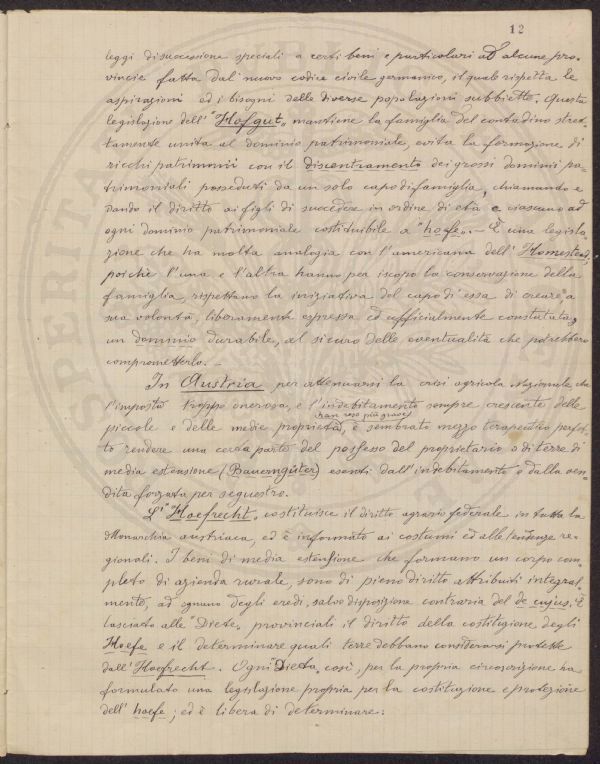 12
leggi di successione speciali a certi beni e particolari ad alcune pro-
vincie fatta dal nuovo codice civile germanico, il quale rispetta le
aspirazioni ed i bisogni delle diverse popolazioni subbiette. Questa
legislazione dell'"Hofgut" mantiene la famiglia del contadino stret-
tamente unita al dominio patrimoniale, evita la formazione di
ricchi patrimonii con il discentramento dei grossi dominii pa-
trimoniali posseduti da un solo capo di famiglia, chiamando e
dando il diritto ai figli di succedere in ordine di età e ciascuno ad
ogni dominio patrimoniale costituibile a "hoefe". - È una legisla
zione che ha molta analogia con l'americana dell'"Homestead",
poichè l'una e l'altra hanno per iscopo la conservazione della
famiglia, rispettano la iniziativa del capo di essa di creare, a
sua volontà, liberamente espressa ed ufficialmente constatata,
un dominio durabile, al sicuro delle eventualità che potrebbero
comprometterlo. -
In Austria per attenuarsi la crisi agricola nazionale che
l'imposta troppo onerosa, e l'indebitamento sempre crescente delle
han reso più grave,
piccole e delle medie proprietà, è sembrato mezzo terapeutico perfet-
to rendere una certa parte del possesso del proprietario o di terre di
media estensione (Bauerngüter) esenti dall'indebitamento e dalla ven-
dita forzata per sequestro.
L'"Hoefrecht" costituisce il diritto agrario federale in tutta la
Monarchia austriaca, ed è informato ai costumi ed alle tendenze re-
gionali. I beni di media estensione che formano un corpo com-
pleto di azienda rurale, sono di pieno diritto attribuiti integral-
mente, ad ognuno degli eredi, salvo disposizione contraria del de cujus. È
lasciato alle "Diete" provinciali il diritto della costituzione degli
Hoefe e il determinare quali terre debbano considerarsi protette
dall'Hoefrecht. Ogni "Dieta" così, per la propria circoscrizione ha
formulato una legislazione propria per la costituzione e protezione
dell'hoefe; ed è libera di determinare: